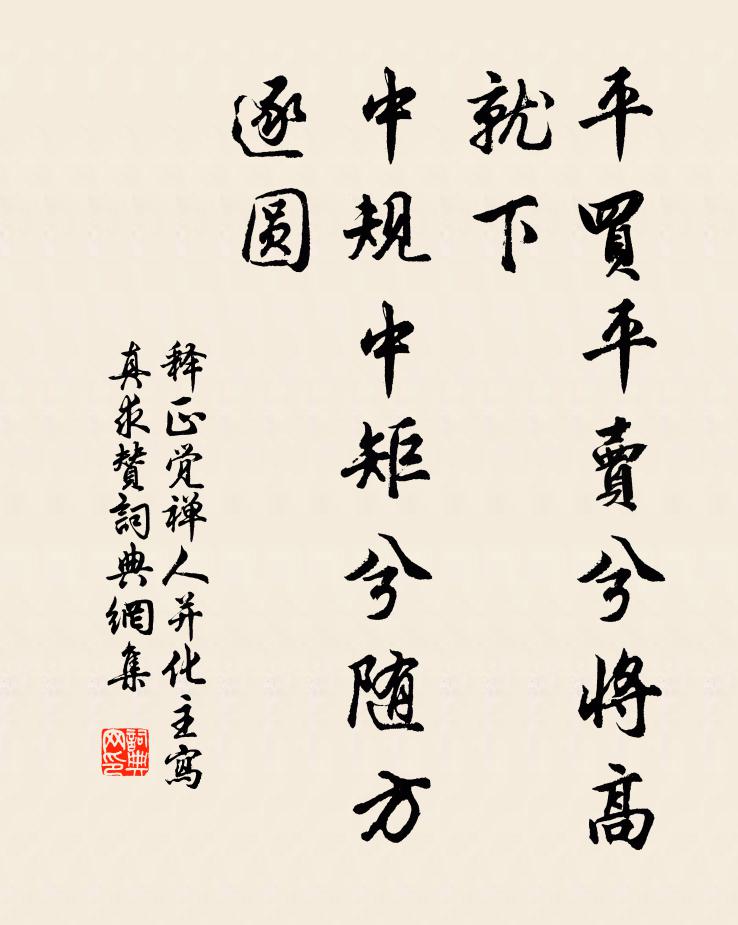 平買平賣兮將高
就下
中規中矩兮随方
逐圆
释正觉禅人并化主寫
真求賛詞典網集
詞典网印